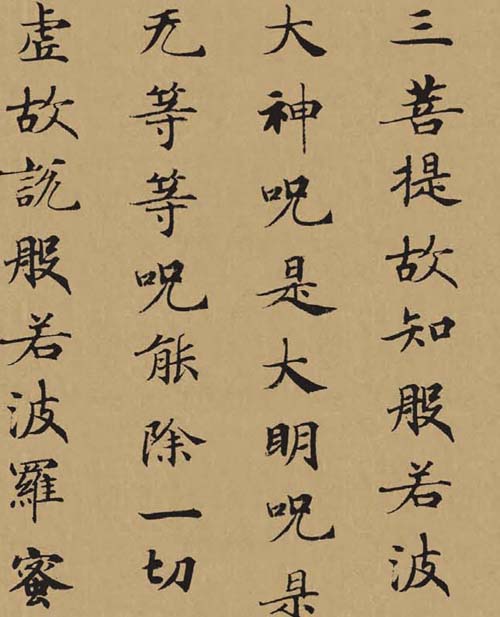 三菩提故知般若波
大神咒是大明咒是
无等等咒能除一切
虚故說般若波羅蜜